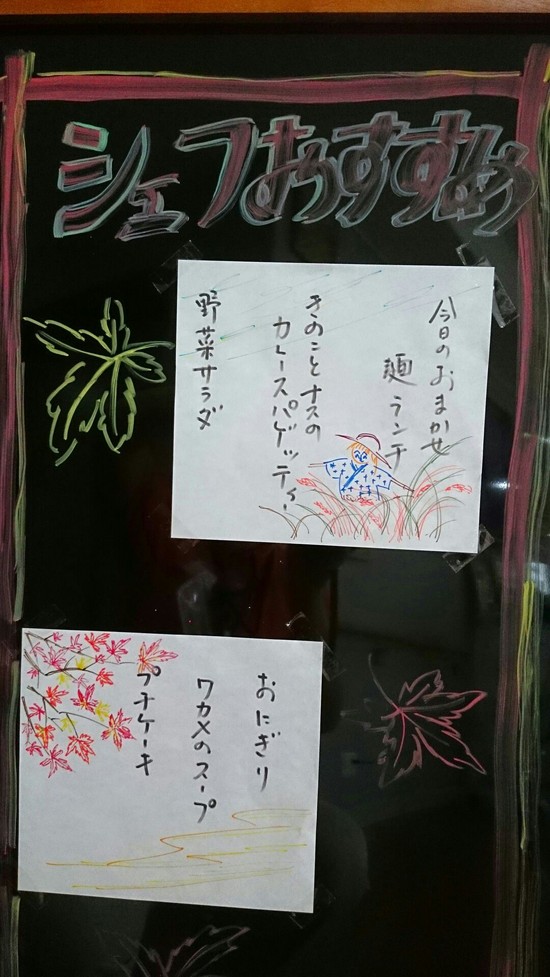 シェフおすすめ
今日のおまかせ
麺ランチ
きのことナスの
カレースパゲッティ
野菜サラダ
おにぎり
ワカメのスープ
プチケーキ